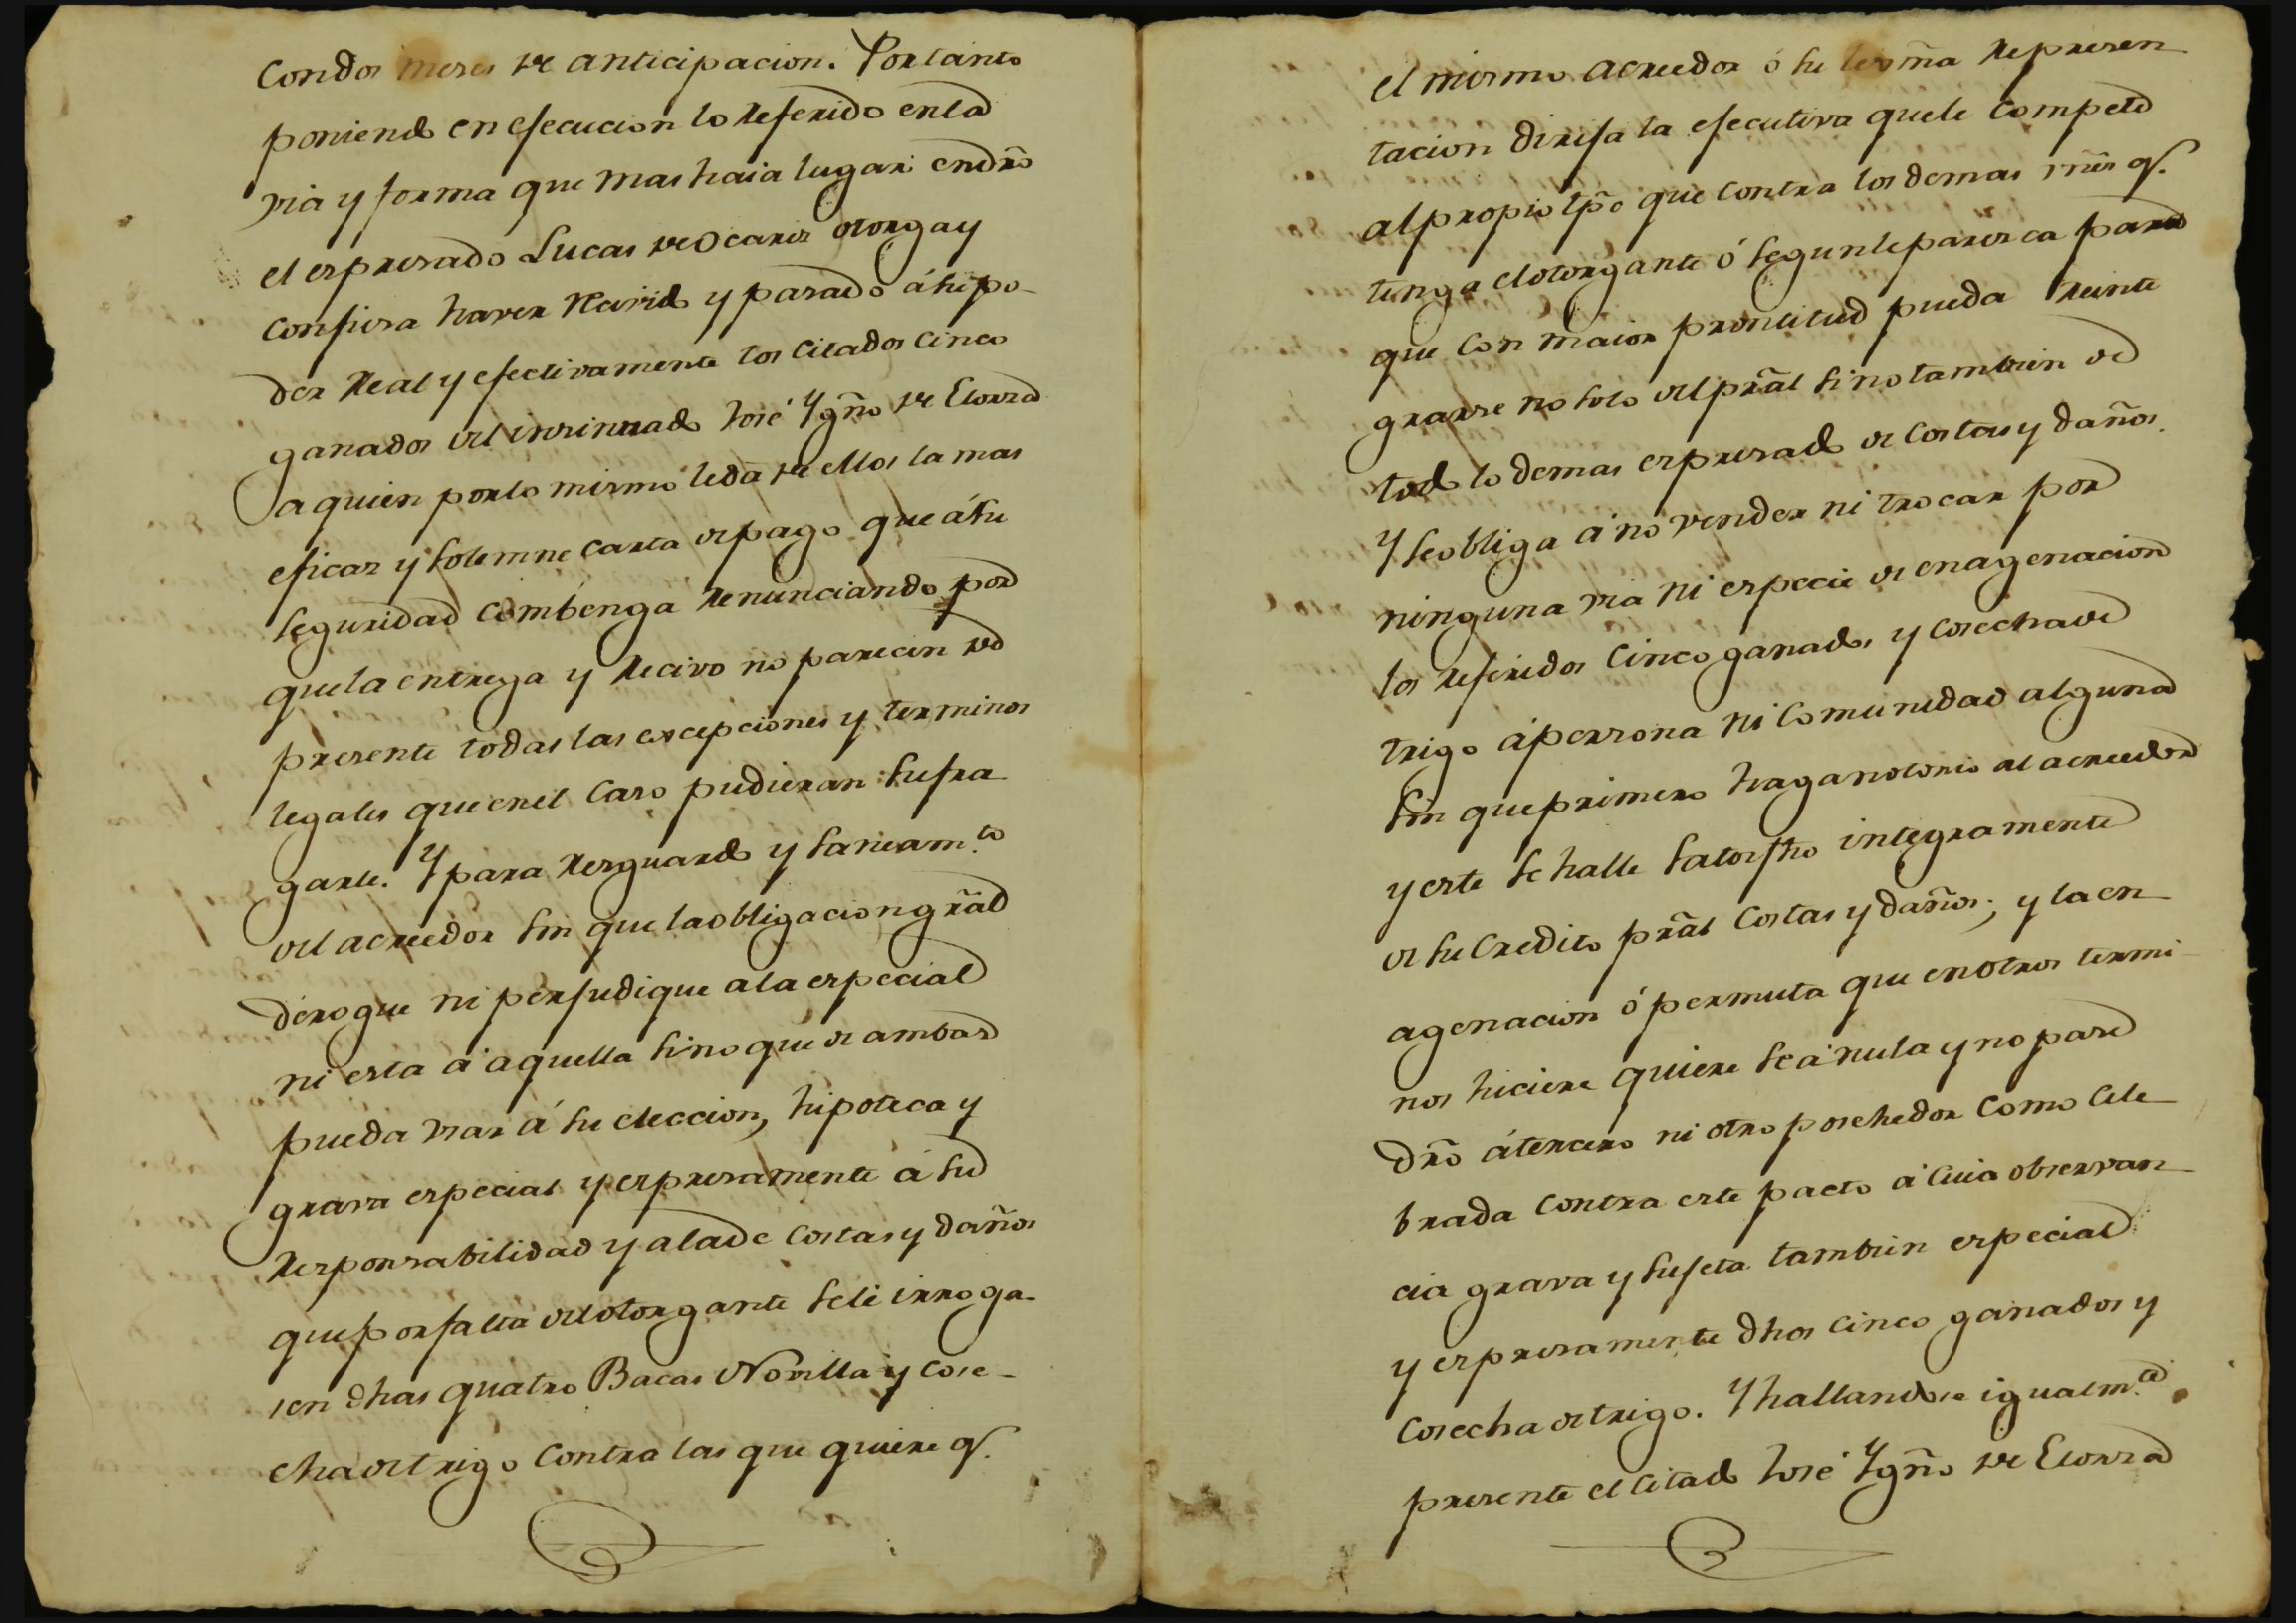 Con dos meses de anticipacion. Por tanto
poniendo en efecucion lo referido en la
via y forma que mas haia lugar en dr̃o
el espresado Lucas de Ocariz otorga y
confiesa haver recivido y pasado á su po-
der real y efectivamente los citados cinco
ganados del insinuado José Ygño de Elorza
a quien por lo mismo le da de ellos la mas
eficaz y solemne carta de pago que á su
seguridad combenga renunciando por
que la entrega y recivo no parecen de
presente todas las excepciones y terminos
legales que en el caso pudieran sufra
garle. Y para resguardo y saneam.to
del acreedor sin que la obligacion grãl
derogue ni perjudique a la especial
ni esta á aquella sino que de ambas
pueda usar á su eleccion, hipoteca y
grava especial y espresamente á su
responsabilidad y a la de costas y daños
que por falta del otorgante se le irroga-
sen dhas quatro Bacas Novilla y cose-
cha de trigo contra las que quiere q.
el mismo acreedor ó su lexma represen
tacion dirija la efecutiva que le compete
al propio tpõ que contra los demas vñes q.
tenga el otorgante ó segun le paresca para
que con maior prontitud pueda reinte
grarse no solo del prãl sino tambien de
todo lo demas espresado de costas y daños.
Y se obliga á no vender ni trocar por
ninguna via ni especie de enagenacion
los referidos cinco ganados y cosecha de
trigo á persona ni comunidad alguna
sin que primero haga notorio al acreedor
y este se halle satisfho integramente
de su credito prãl costas y daños; y la en
agenacion ó permuta que en otros termi-
nos hiciere quiere seá nula y no pase
dr̃o á tercero ni otro posehedor como cele
brada contra este pacto á cuia observan
cia grava y sujeta tambien especial
y espresamente dhos cinco ganados y
cosecha de trigo. Y hallandose igualm.te
presente el citado José Ygño de Elorza